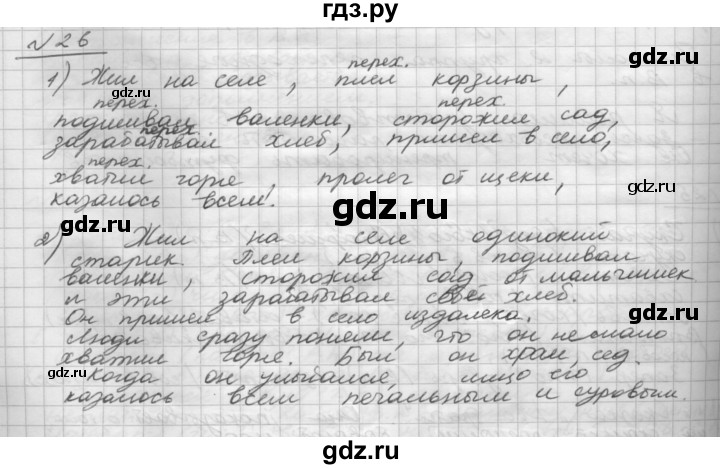 гдз.ру
№26
перех.
1) Жил на селе, плел корзины,
перех. перех.
подшивал валенки, сторожил сад,
перех.
зарабатывал хлеб, пришел в село,
перех.
хватил горе, пролег от щеки,
казалось всем.
2) Жил на селе одинокий
старик. Плел корзины, подшивал
валенки, сторожил сад от мальчишек
и эти зарабатывал свой хлеб.
Он пришел в село издалека.
Люди сразу поняли, что он не мало
хватил горе. Был он храм, сед.
Когда он улыбался, лицо его
казалось всем печальным и суровым.
gdz.ru
gdz.ru
gdz.ru
gdz.ru
gdz.ru
gdz.ru
gdz.ru
gdz.ru
gdz.ru
gdz.ru
gdz.ru
gdz.ru
gdz.ru